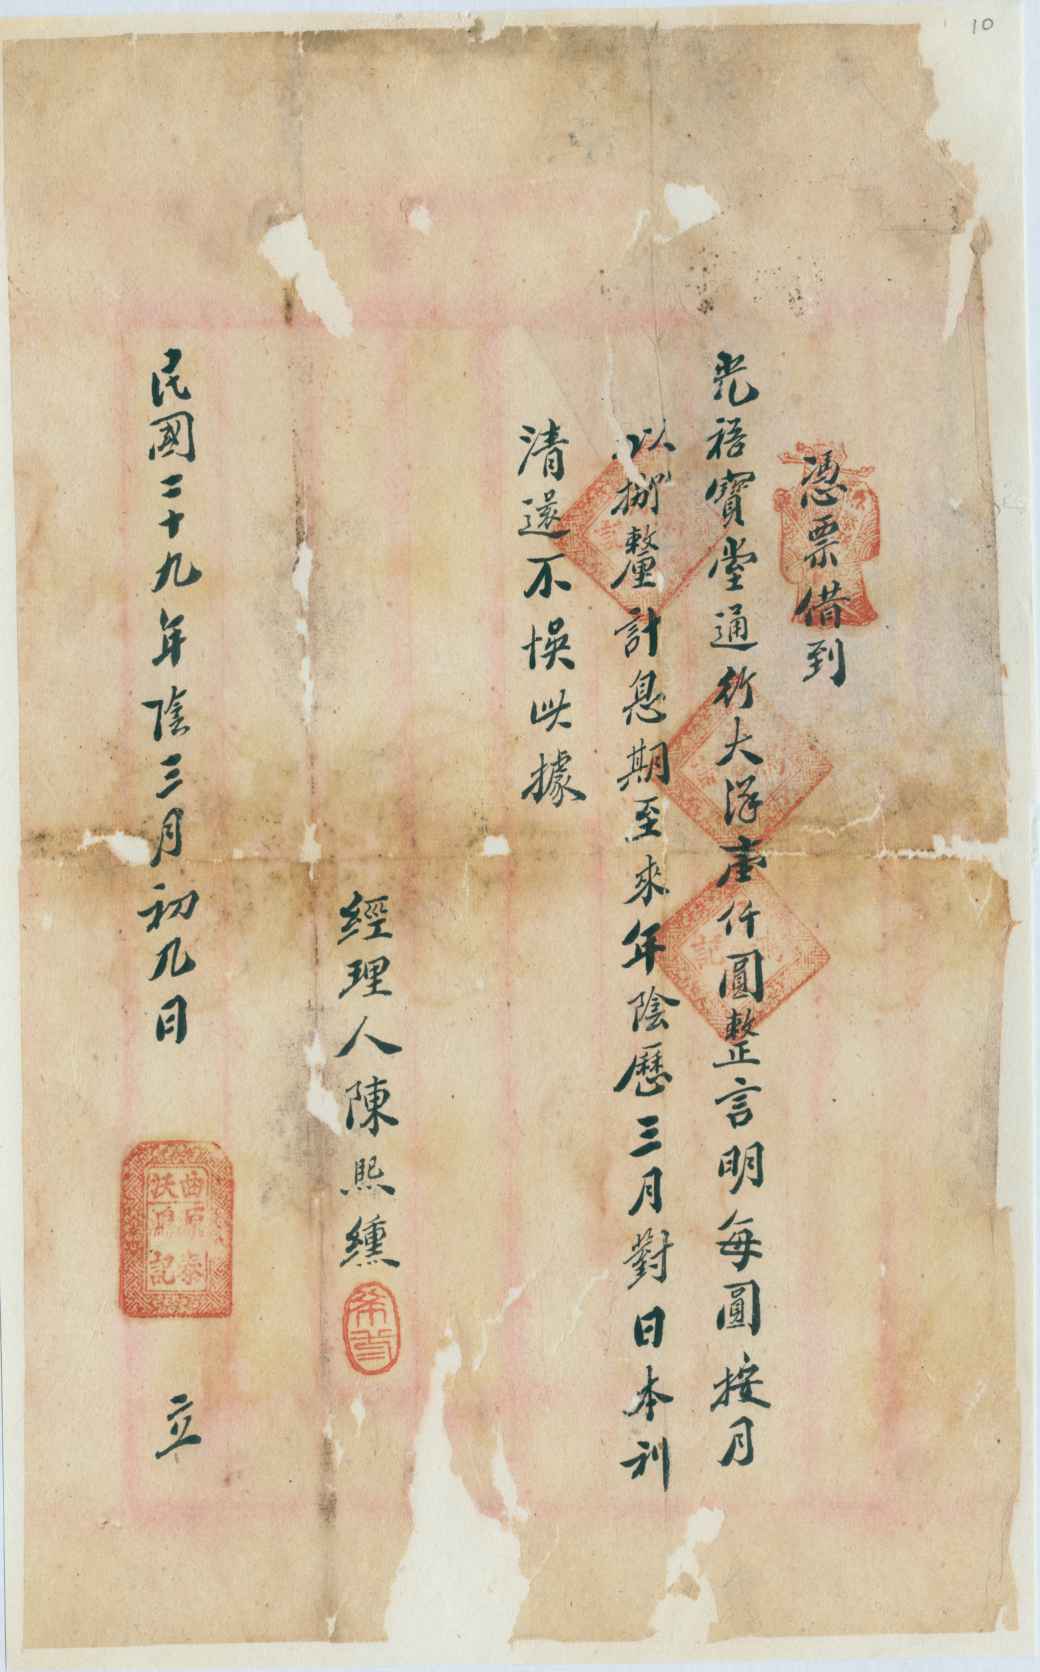 10
憑票借到
光禧寶堂通行大洋壹仟圓整言明每圓按月
以捌釐計息期至來年陰曆三月對日本利
清還不悞此據
經理人陳熙纁
民國二十九年陰三月初九日
立
記